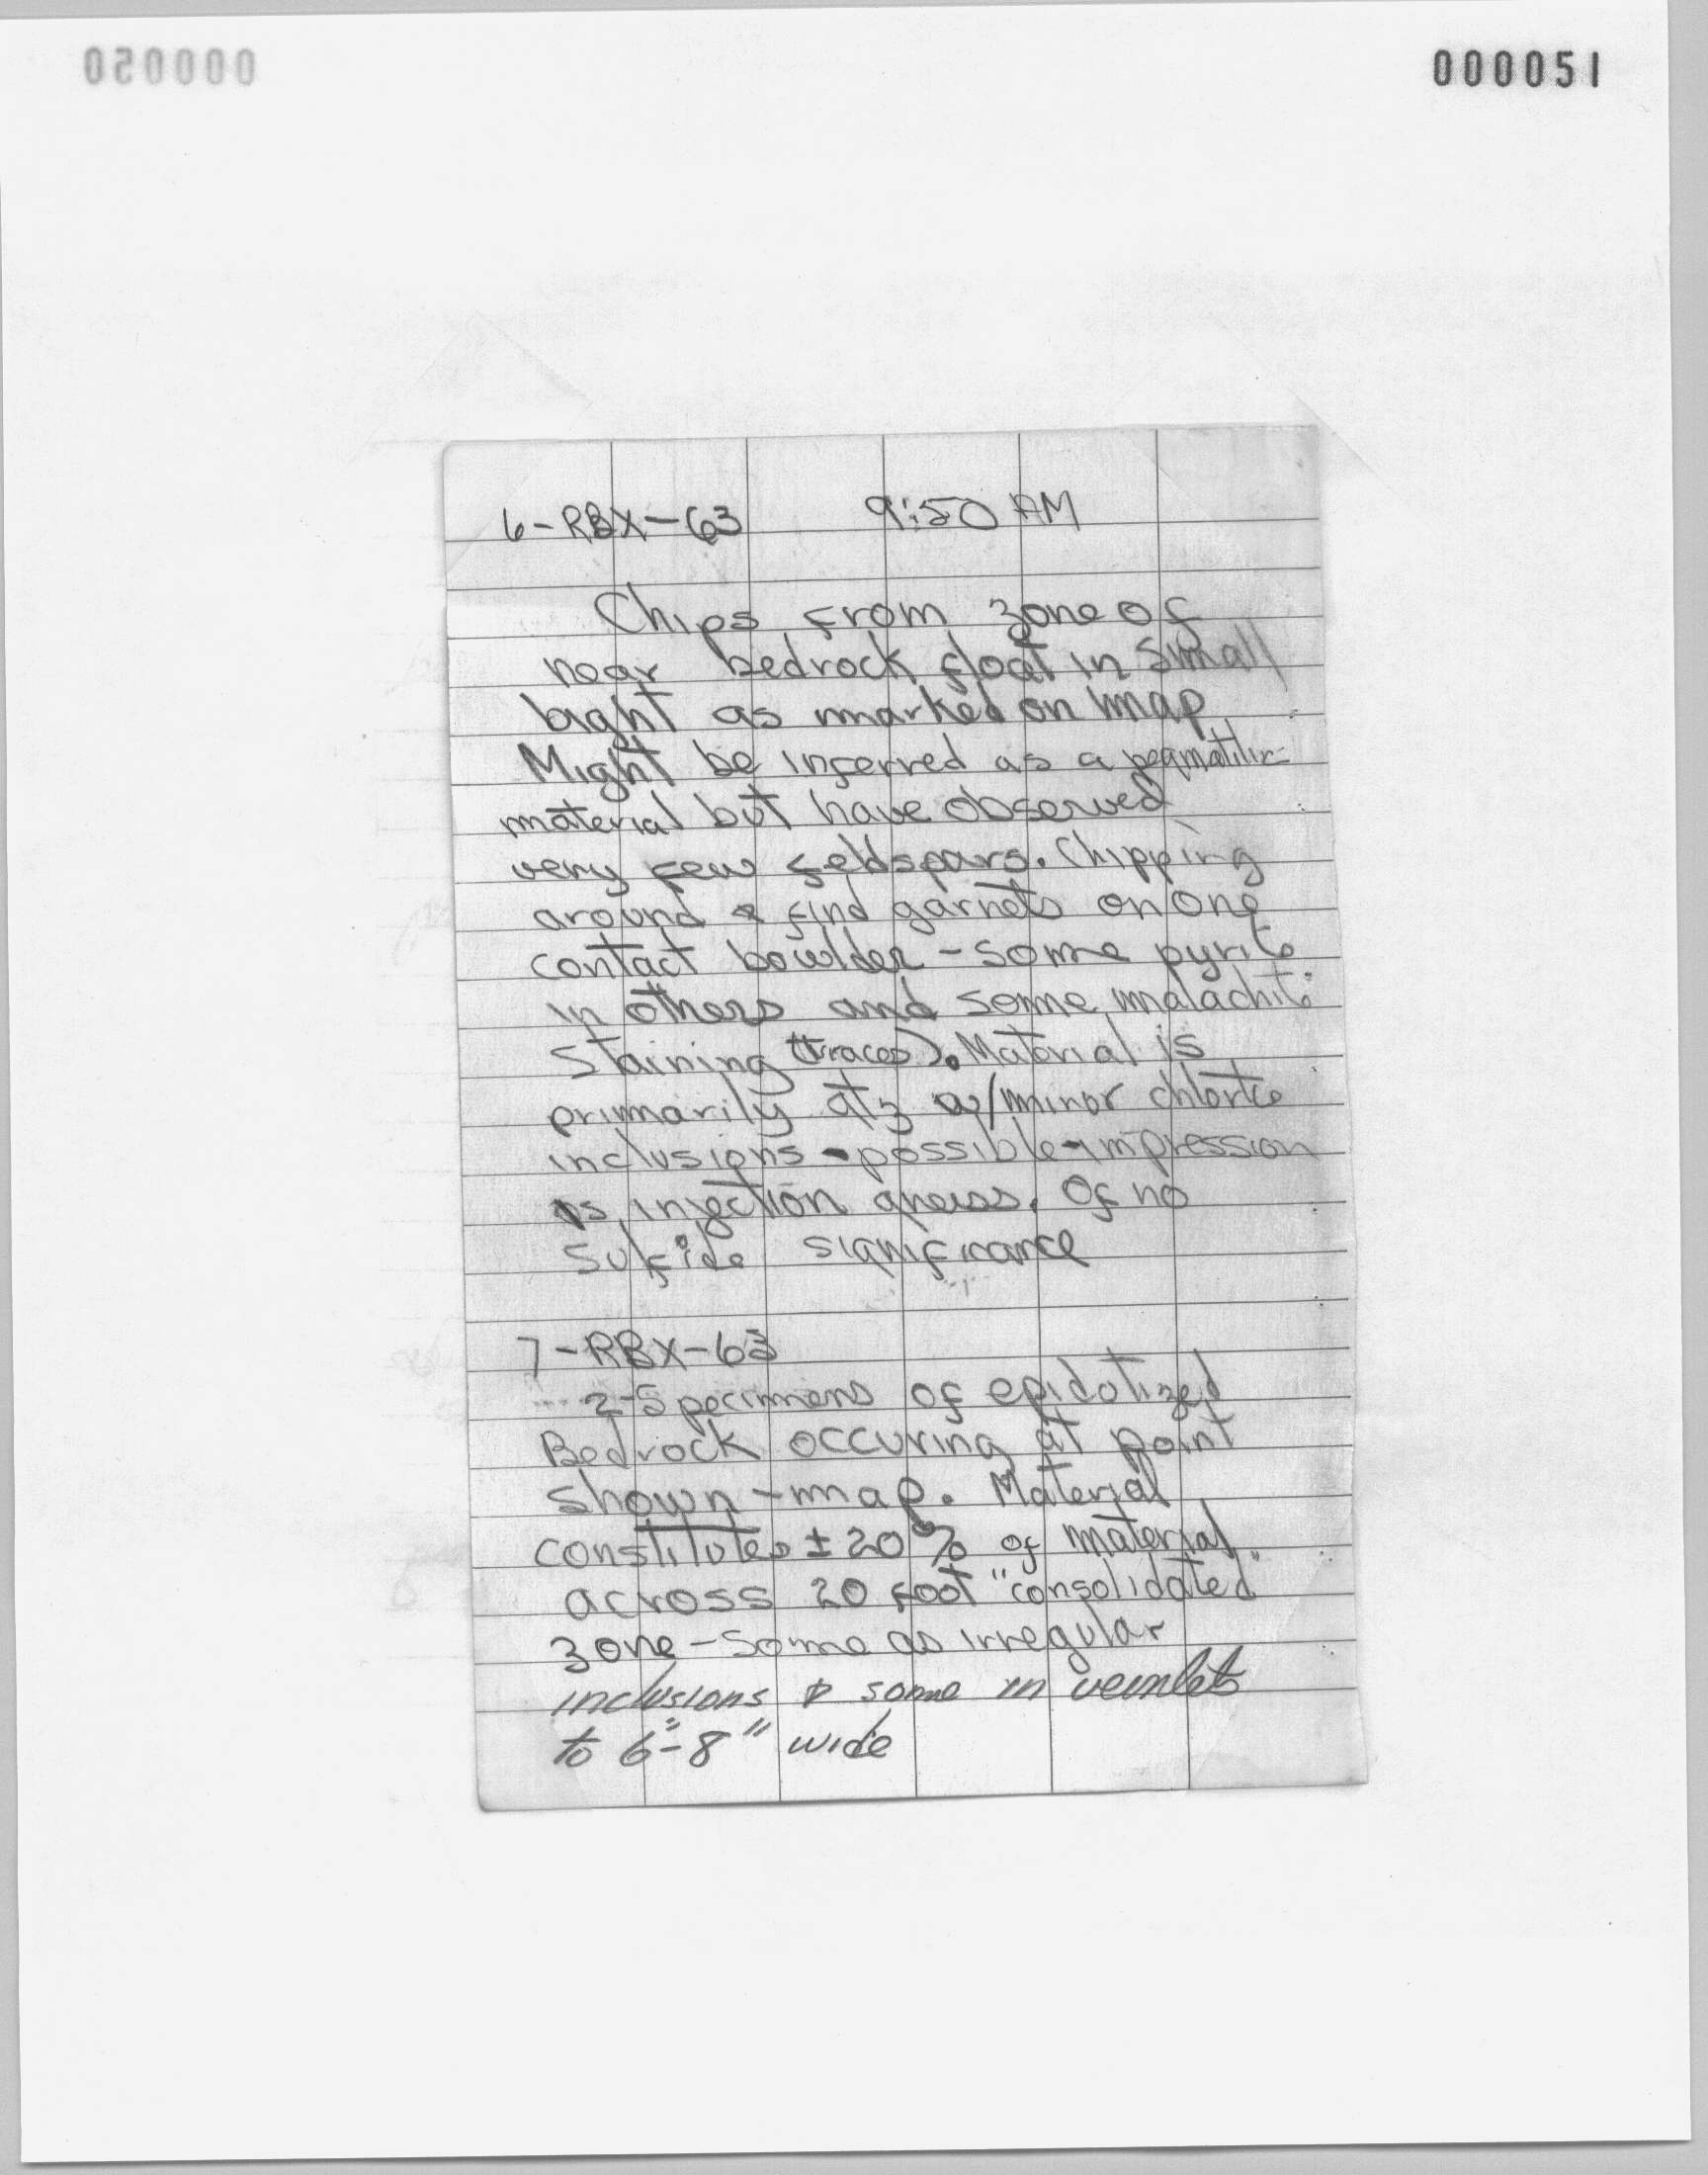 000051
6-RBX-63 9:50 AM
Chips from zone of
near bedrock float in small
bight as marked on map
Might be inferred as a pegmatitic
material but have observed
very few feldspars. Chipping
around & find garnets on one
contact bowlder - some pyrite
in others and some malachite
staining (traces). Material is
primarily qtz w/minor chlorite
inclusions - possible - impression
is injection gneiss. Of no
sulfide significance
7-RBX-63
2-Specimens of epidotized
Bedrock occuring at point
shown - map. Material
constitutes ± 20% of material
across 20 foot "consolidated
zone - some as irregular
inclusions & some in veinlets
to 6"-8" wide